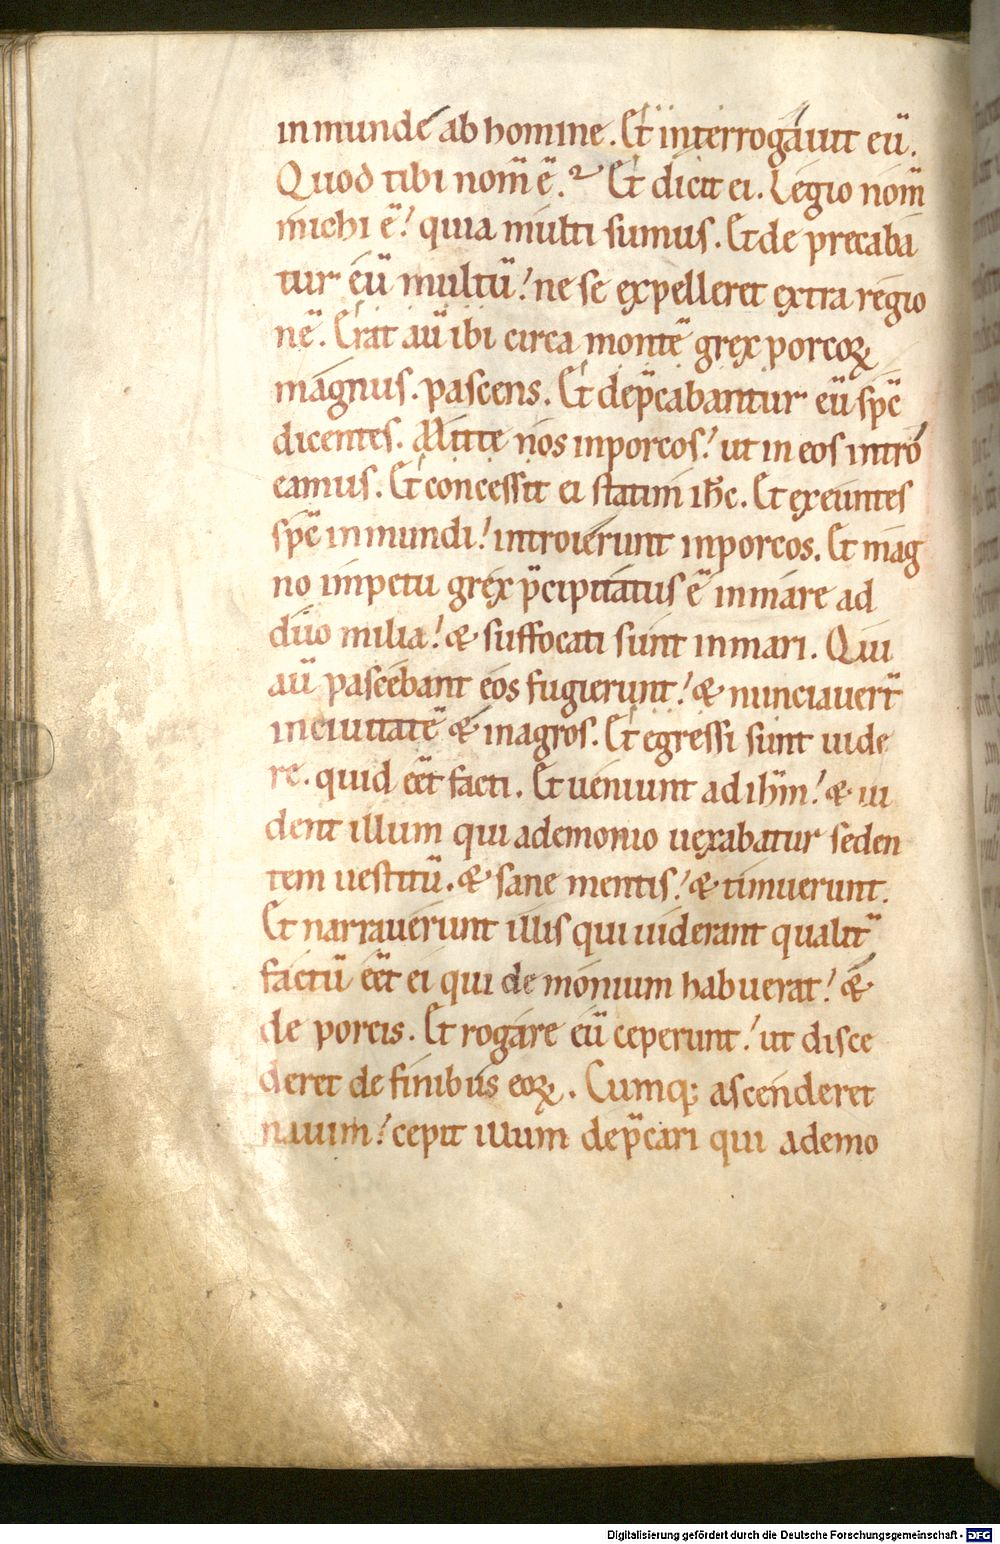 inmunde ab homine. Et interrogauit eū.
Quod tibi nom̄ ē.? Et dicit ei. Legio nom̄
michi ē! quia multi sumus. Et de precaba
tur eū multū! ne se expelleret extra regio
nē. Erat aū ibi circa montē grex porcoꝝ
magnus. pascens. Et dep̄cabantur eū sp̄c
dicentes. Mitte nos inporcos! ut in eos intro
eamus. Et concessit ei statim ih̄c. Et exeuntes
sp̄c inmundi! introierunt inporcos. Et mag
no impetu grex p̄cipitatus ē inmare ad
duo milia! & suffocati sunt inmari. Qui
aū pascebant eos fugierunt! & nunciauer̄t
inciuitatē & inagros. Et egressi sunt uide
re. quid eēt facti. Et ueniunt ad ih̄m! & ui
dent illum qui ademonio uexabatur seden
tem uestitū. & sane mentis! & timuerunt.
Et narrauerunt illis qui uiderant qualit̄
factū eēt ei qui de monium habuerat! &
de porcis. Et rogare eū ceperunt! ut disce
deret de finibus eoꝝ. Cumq; ascenderet
nauim! cepit illum dep̄cari qui ademo
Digitalisierung gefördert durch die Deutsche Forschungsgemeinschaft - DFG